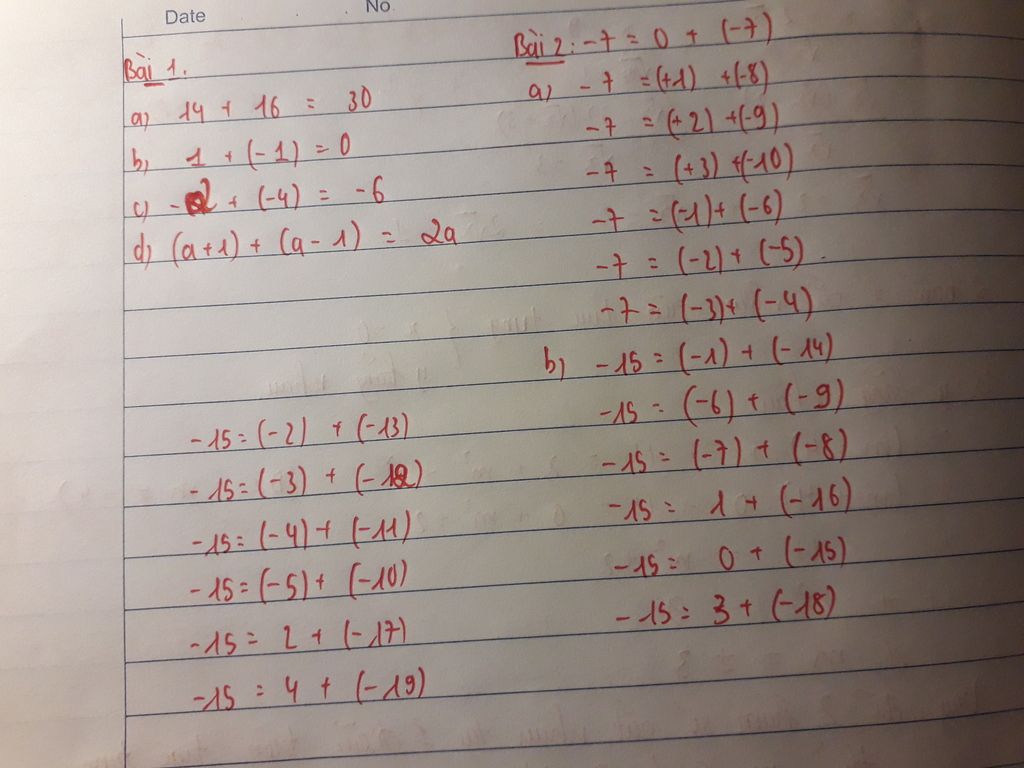 Date
No.
Bài 1.
a) 14 + 16 = 30
b) 1 + (-1) = 0
c) -2 + (-4) = -6
d) (a+1) + (a-1) = 2a
Bài 2: -7 = 0 + (-7)
a) -7 = (+1) + (-8)
-7 = (+2) + (-9)
-7 = (+3) + (-10)
-7 = (-1) + (-6)
-7 = (-2) + (-5).
-7 = (-3) + (-4)
b) -15 = (-1) + (-14)
-15 = (-2) + (-13)
-15 = (-3) + (-12)
-15 = (-4) + (-11)
-15 = (-5) + (-10)
-15 = 2 + (-17)
-15 = 4 + (-19)
-15 = (-6) + (-9)
-15 = (-7) + (-8)
-15 = 1 + (-16)
-15 = 0 + (-15)
-15 = 3 + (-18)